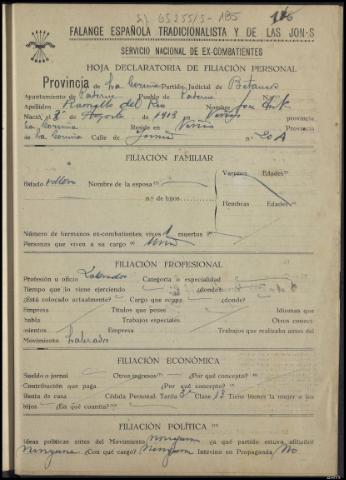 FALANGE ESPAÑOLA TRADICIONALISTA Y DE LAS JON-S
SERVICIO NACIONAL DE EX-COMBATIENTES
HOJA DECLARATORIA DE FILIACIÓN PERSONAL
Provincia de La Coruña Partido Judicial de Betanzos
Ayuntamiento de Paderne Pueblo de Paderne N.º
Apellidos del Rio Nombre José
Nació, el 8 de Agosto de 1913 provincia
La Coruña Reside en Provincia
de La Coruña Calle de n.º 20 A
FILIACIÓN FAMILIAR
Estado soltero Nombre de la esposa Varones Edades
n.º de hijos
Hembras Edades
Número de hermanos ex-combatientes, vivos 1 muertos
Personas que viven a su cargo
FILIACIÓN PROFESIONAL
Profesión u oficio Labrador Categoría o especialidad
Tiempo que lo viene ejerciendo ¿donde?
¿Está colocado actualmente? Cargo que ocupa ¿donde?
Empresa Títulos que posee Idiomas que
habla Trabajos especiales Otros conoci-
mientos Empresa Trabajos que realizaba antes del
Movimiento Labrador
FILIACIÓN ECONÓMICA
Sueldo o jornal Otros ingresos ¿Por qué concepto?
Contribución que paga ¿Por qué concepto?
Renta de casa Cédula Personal. Tarifa 3ª Clase 13 Tiene bienes la mujer o los
hijos ¿En qué cuantía?
FILIACIÓN POLÍTICA
Ideas políticas antes del Movimiento ninguna ¿a qué partido estuvo afiliado?
ninguno ¿Con qué cargo? Ninguno Intervino en Propaganda No